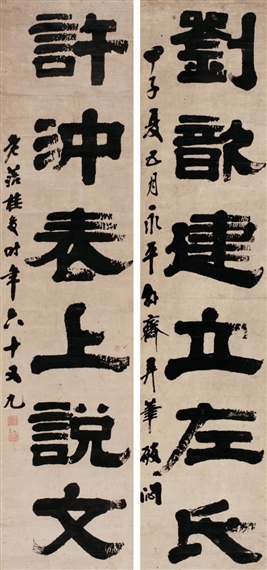 劉歆建立左氏
甲子夏五月永平郡齋弄筆破悶
許沖表上說文
老菭桂馥時年六十又九